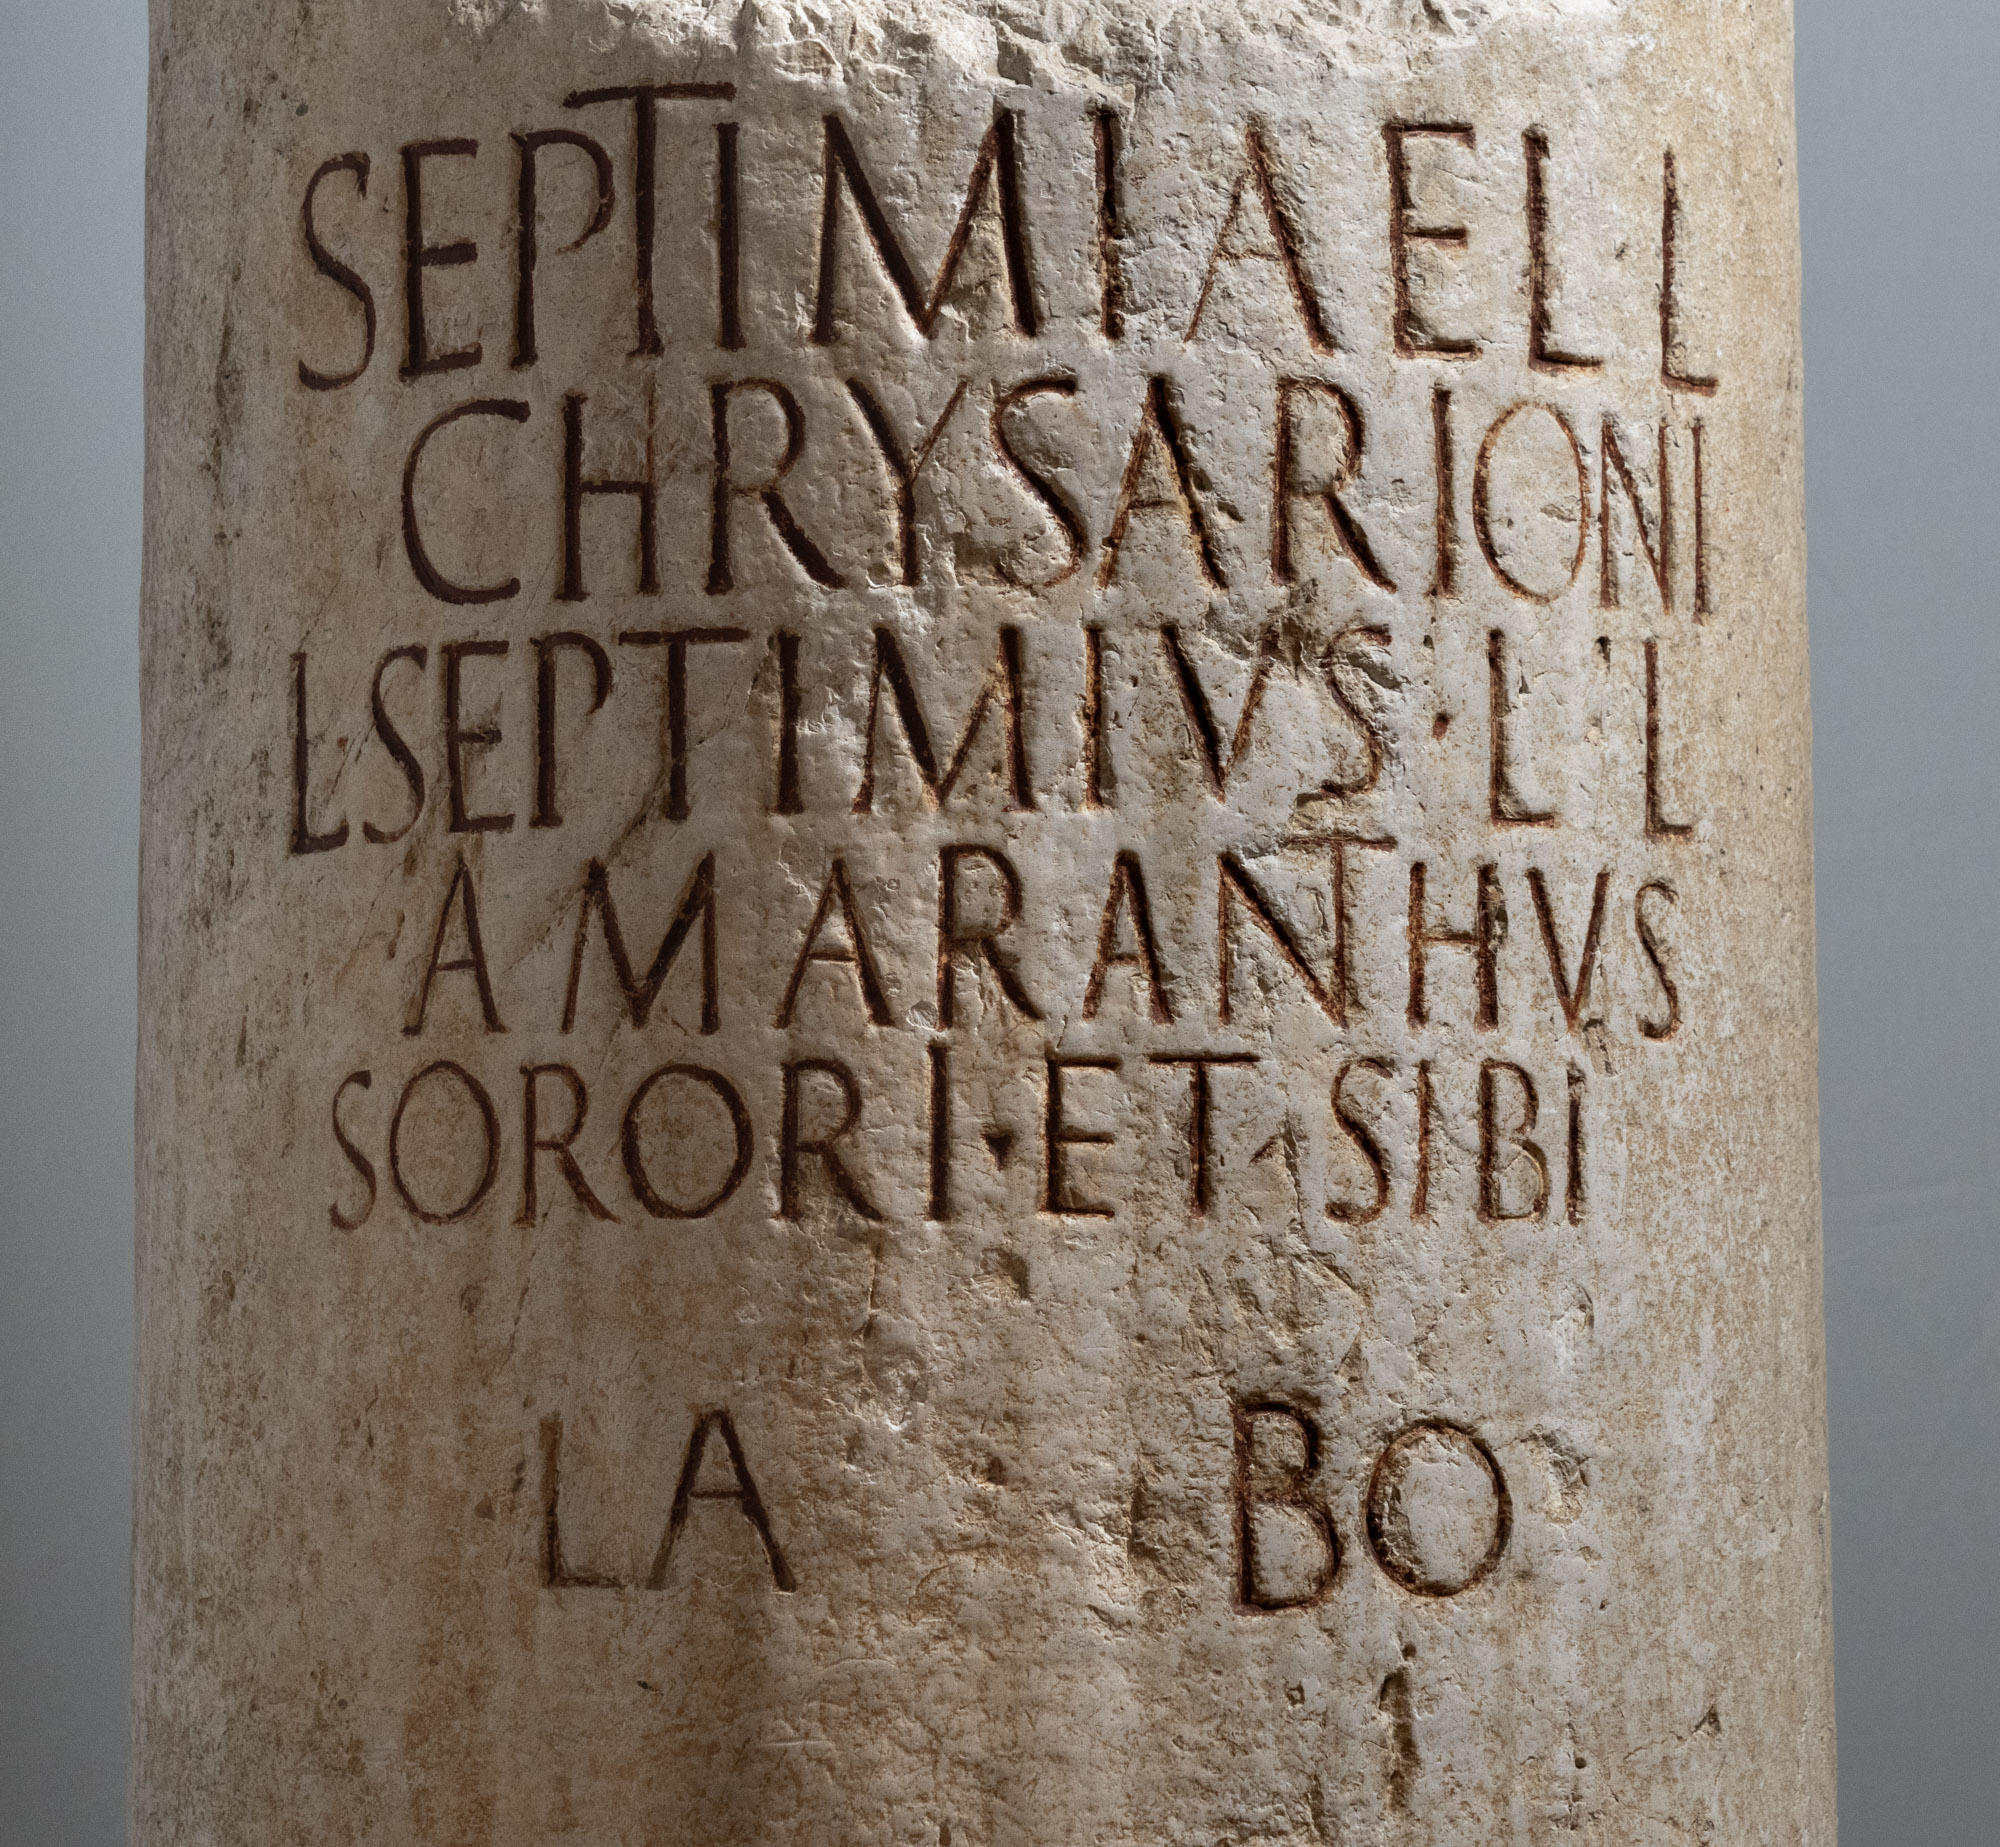 SEPTIMIAE L L
CHRYSARIONI
L SEPTIMIVS · L ' L
AMARANTHVS
SORORI · ET · SIBI
LA BO